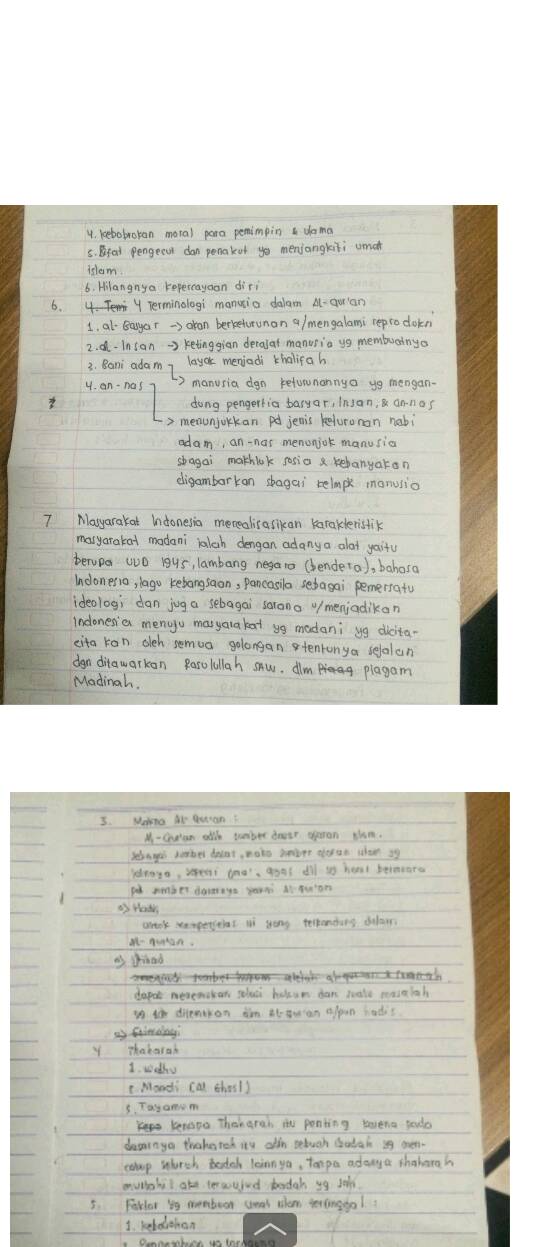 4. kebobrokan moral para pemimpin & ulama
5. Sifat pengecut dan penakut yg menjangkiti umat
islam.
6. Hilangnya kepercayaan diri
6. 4. 4 Terminologi manusia dalam Al-qur'an
1. al-Basyar -> akan berketurunan a/mengalami reproduksi
2. al-Insan -> ketinggian derajat manusia yg membuatnya
3. Bani adam layak menjadi khalifah
4. an-nas -> manusia dgn keturunannya yg mengan-
dung pengertia basyar, Insan, & an-nas
-> menunjukkan pd jenis keturunan nabi
adam, an-nas menunjuk manusia
sbagai makhluk sosia & kebanyakan
digambarkan sbagai kelmpk manusia
7 Masyarakat Indonesia merealisasikan karakteristik
masyarakat madani ialah dengan adanya alat yaitu
berupa UUD 1945, lambang negara (bendera), bahasa
Indonesia, lagu kebangsaan, Pancasila sebagai pemersatu
ideologi dan juga sebagai sarana u/menjadikan
Indonesia menuju masyarakat yg madani yg dicita-
cita kan oleh semua golongan & tentunya sejalan
dgn ditawarkan Rasulullah SAW. dlm piagam
Madinah.
3. Makna Al-Qur'an :
Al-Qur'an adlh sumber dasar ajaran islam.
sebagai sumber dasar, maka sumber ajaran islam yg
lainnya, seperti ijma', qiyas dll yg harus bermuara
pd sumber dasarnya yakni Al-qur'an
a) Hadis
untuk memperjelas isi yang terkandung dalam
Al-qur'an.
a) Ijtihad
menjadi sumber hukum setelah al-qur'an & sunnah
dapat menemukan solusi hukum dari suatu masalah
yg tdk ditentukan dlm al-qur'an a/pun hadis.
a) Etimologi
4 Thaharah
1. wudhu
2. Mandi (al Ghosl)
3. Tayamum
kenapa Thaharah itu penting karena pada
dasarnya thaharah itu adlh sebuah ibadah yg men-
cakup seluruh ibadah lainnya, Tanpa adanya thaharah
mustahil akan terwujud ibadah yg sah.
5. Faktor yg membuat umat islam tertinggal :
1. kebodohan
2. Pengetahuan yg